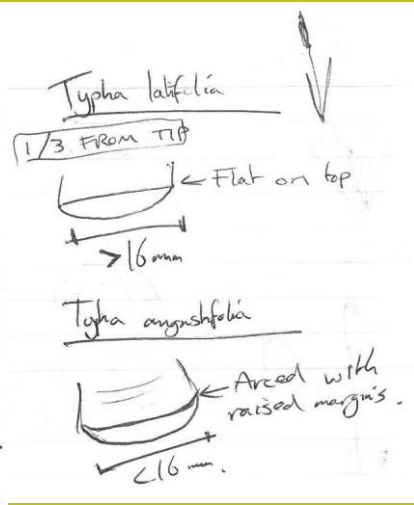 Typha latifolia
1/3 FROM TIP
← Flat on top
>16mm
Typha angustifolia
← Arced with
raised margins.
<16mm.